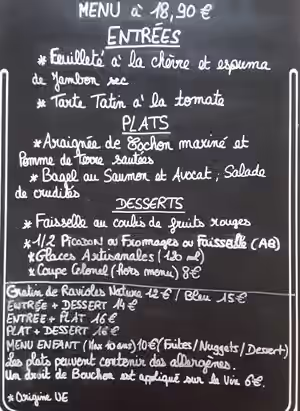 MENU à 18,90 €
ENTRÉES
* Feuilleté à la chèvre et espuma
de Jambon sec
* Tarte Tatin à la tomate
PLATS
* Araignée de Cochon mariné et
Pomme de Terre sautées
* Bagel au Saumon et Avocat, Salade
de crudités
DESSERTS
* Faisselle au coulis de fruits rouges
* 1/2 PICODON ou Fromages ou FAISSELLE (AB)
* Glaces Artisanales (120 ml)
* Coupe Colonel (hors menu) 8€
Gratin de Ravioles Nature 12€ / Bleu 15€
ENTRÉE + DESSERT 14€
ENTRÉE + PLAT 16€
PLAT + DESSERT 16€
MENU ENFANT (Max 10 ans) 10€ (Frites/Nuggets/Dessert)
Les plats peuvent contenir des allergènes.
Un droit de Bouchon est appliqué sur le Vin 6€.
* Origine UE